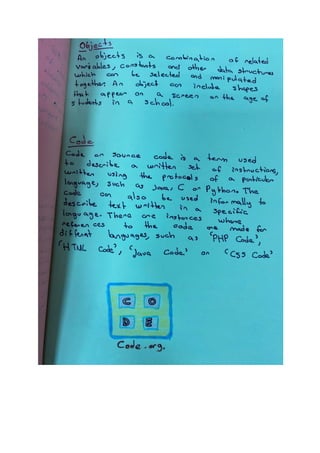 Objects
An object is a combination of related
variables, constants and other data structures
which can be selected and manipulated
together. An object can include shapes
that appear on a screen or the age of
students in a school.
Code
Code or source code is a term used
to describe a written set of instructions,
written using the protocols of a particular
language, such as Java, C or Python. The
code can also be used informally to
describe text written in a specific
language. There are instances where
references to the code are made for
different languages, such as 'PHP Code',
'HTML Code', 'Java Code' or 'CSS Code'
C O
D E
Code.org.